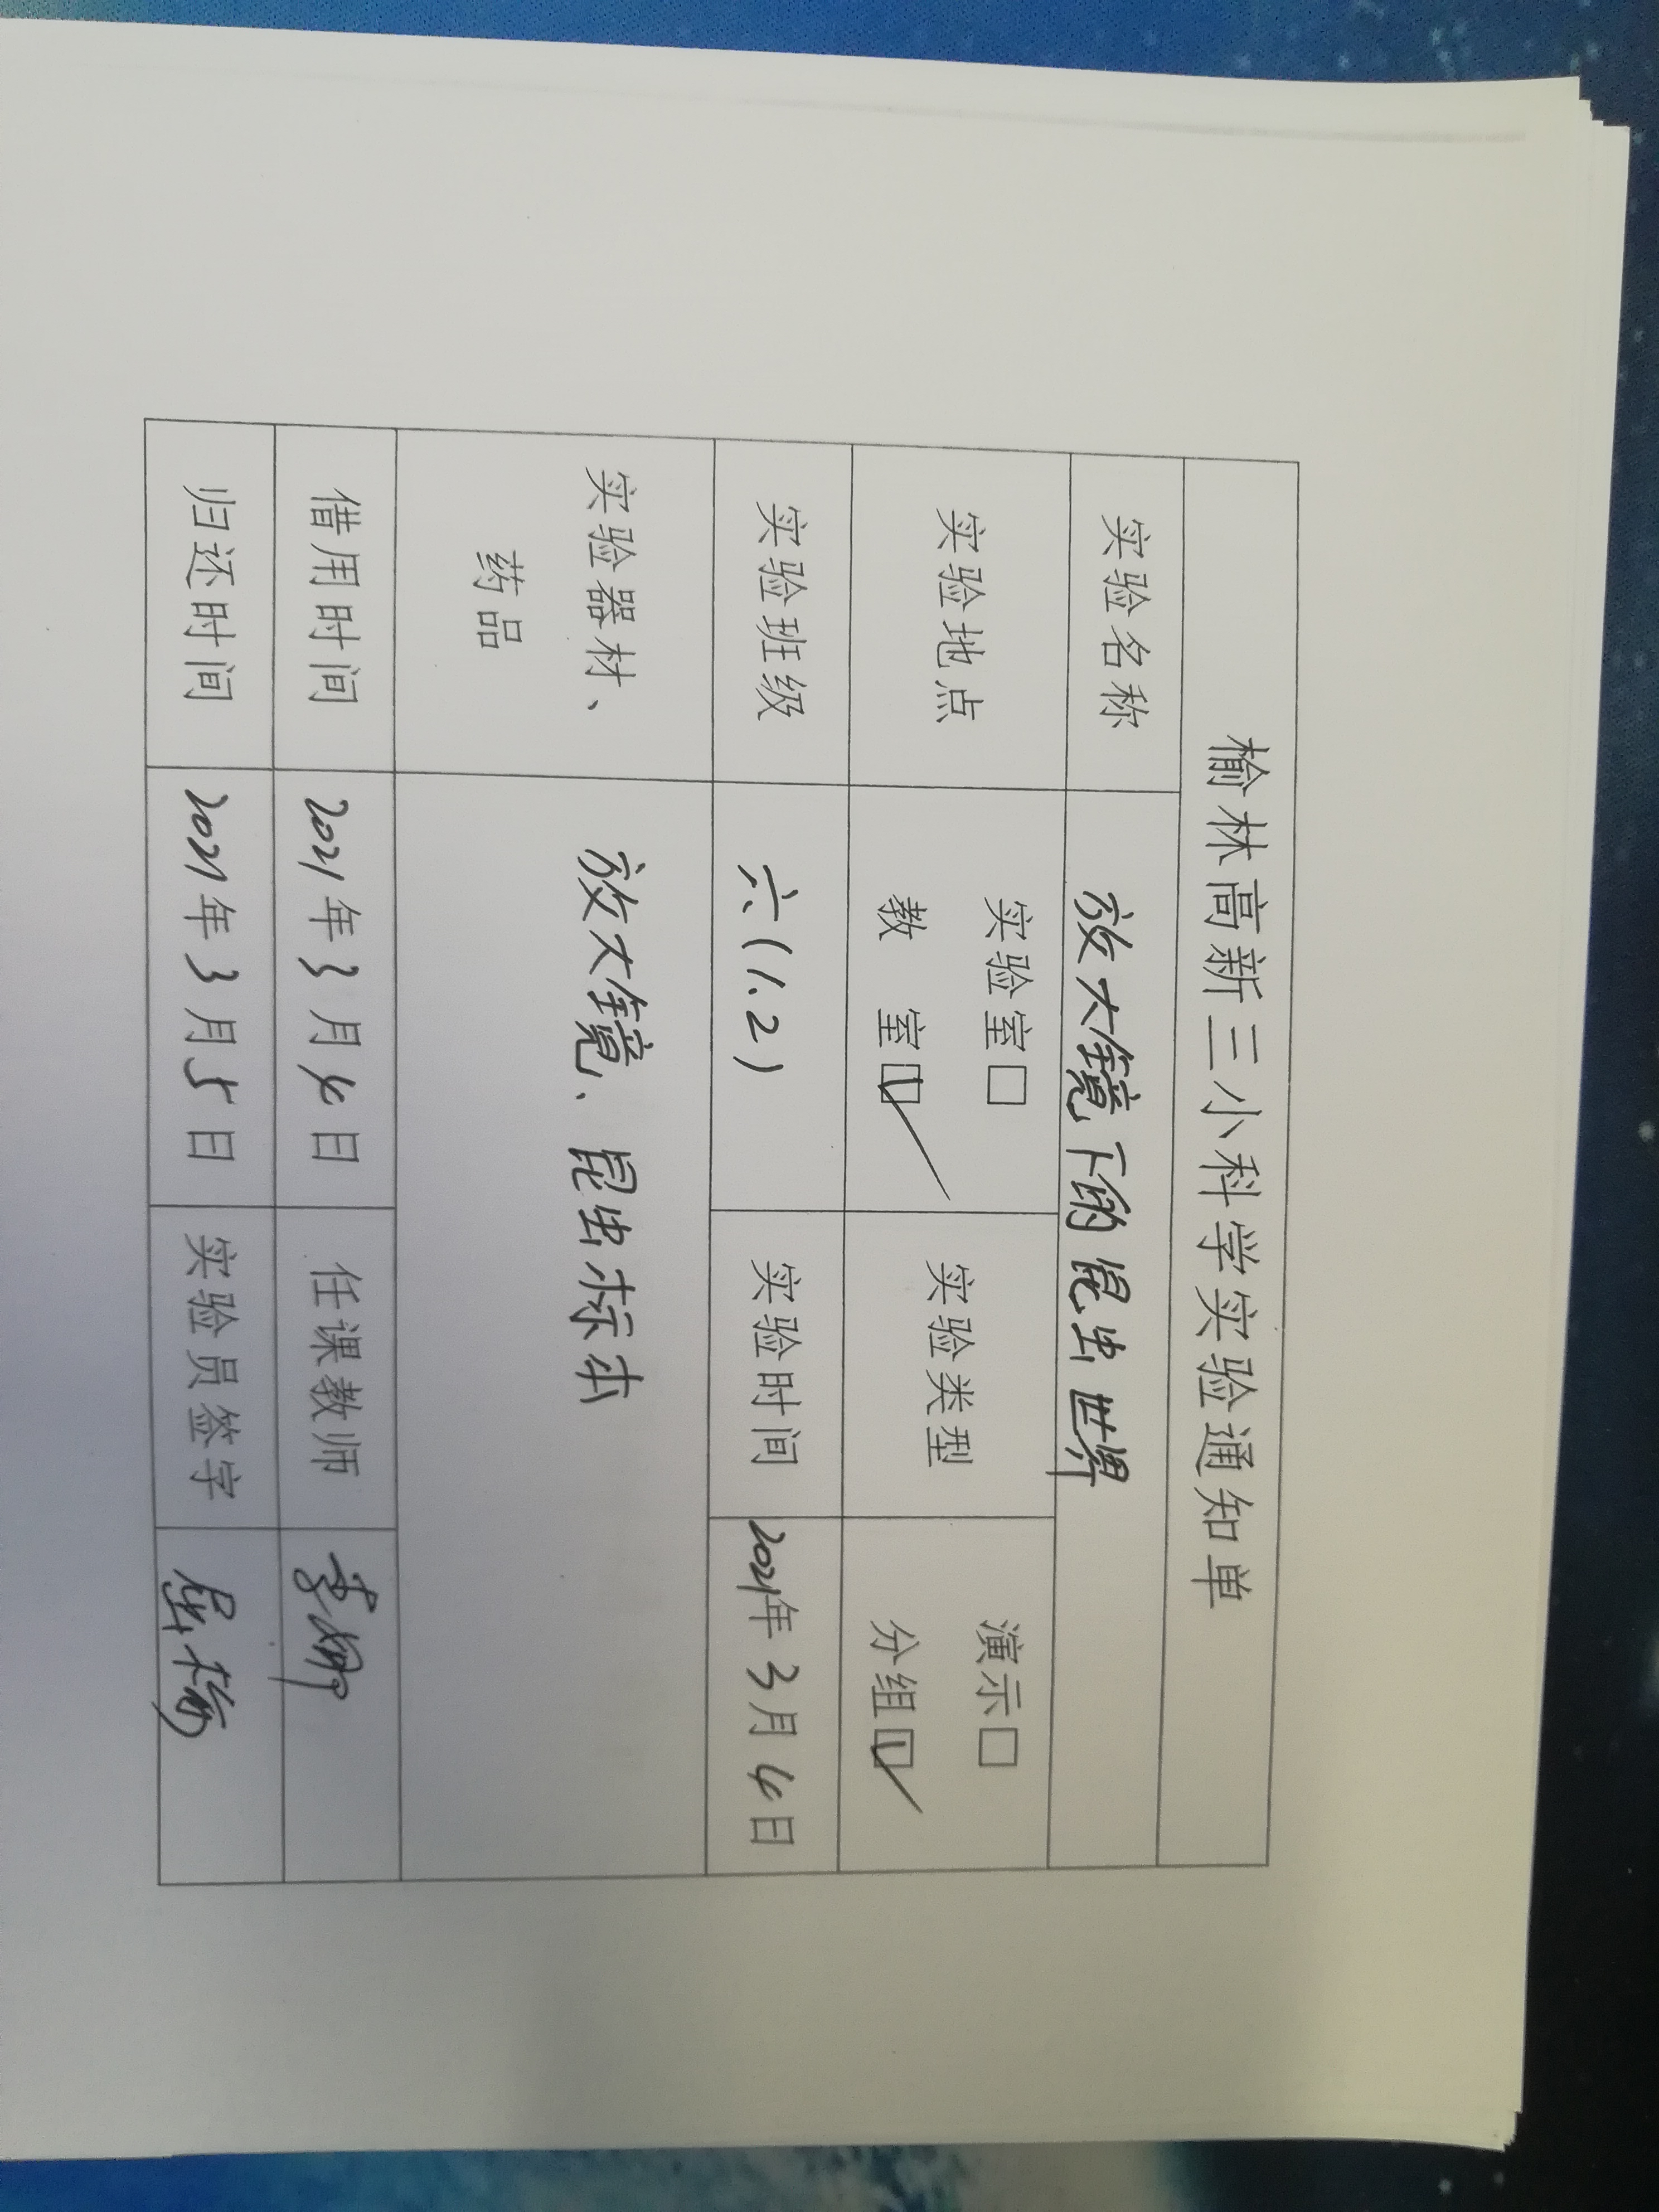 榆林高新三小科学实验通知单
实验名称 放大镜下的昆虫世界
实验地点 实验室□ 教 室☑ 实验类型 演示□ 分组☑
实验班级 六(1.2) 实验时间 2021年3月4日
实验器材、
药品 放大镜、昆虫标本
借用时间 2021年3月4日 任课教师 李娜
归还时间 2021年3月5日 实验员签字